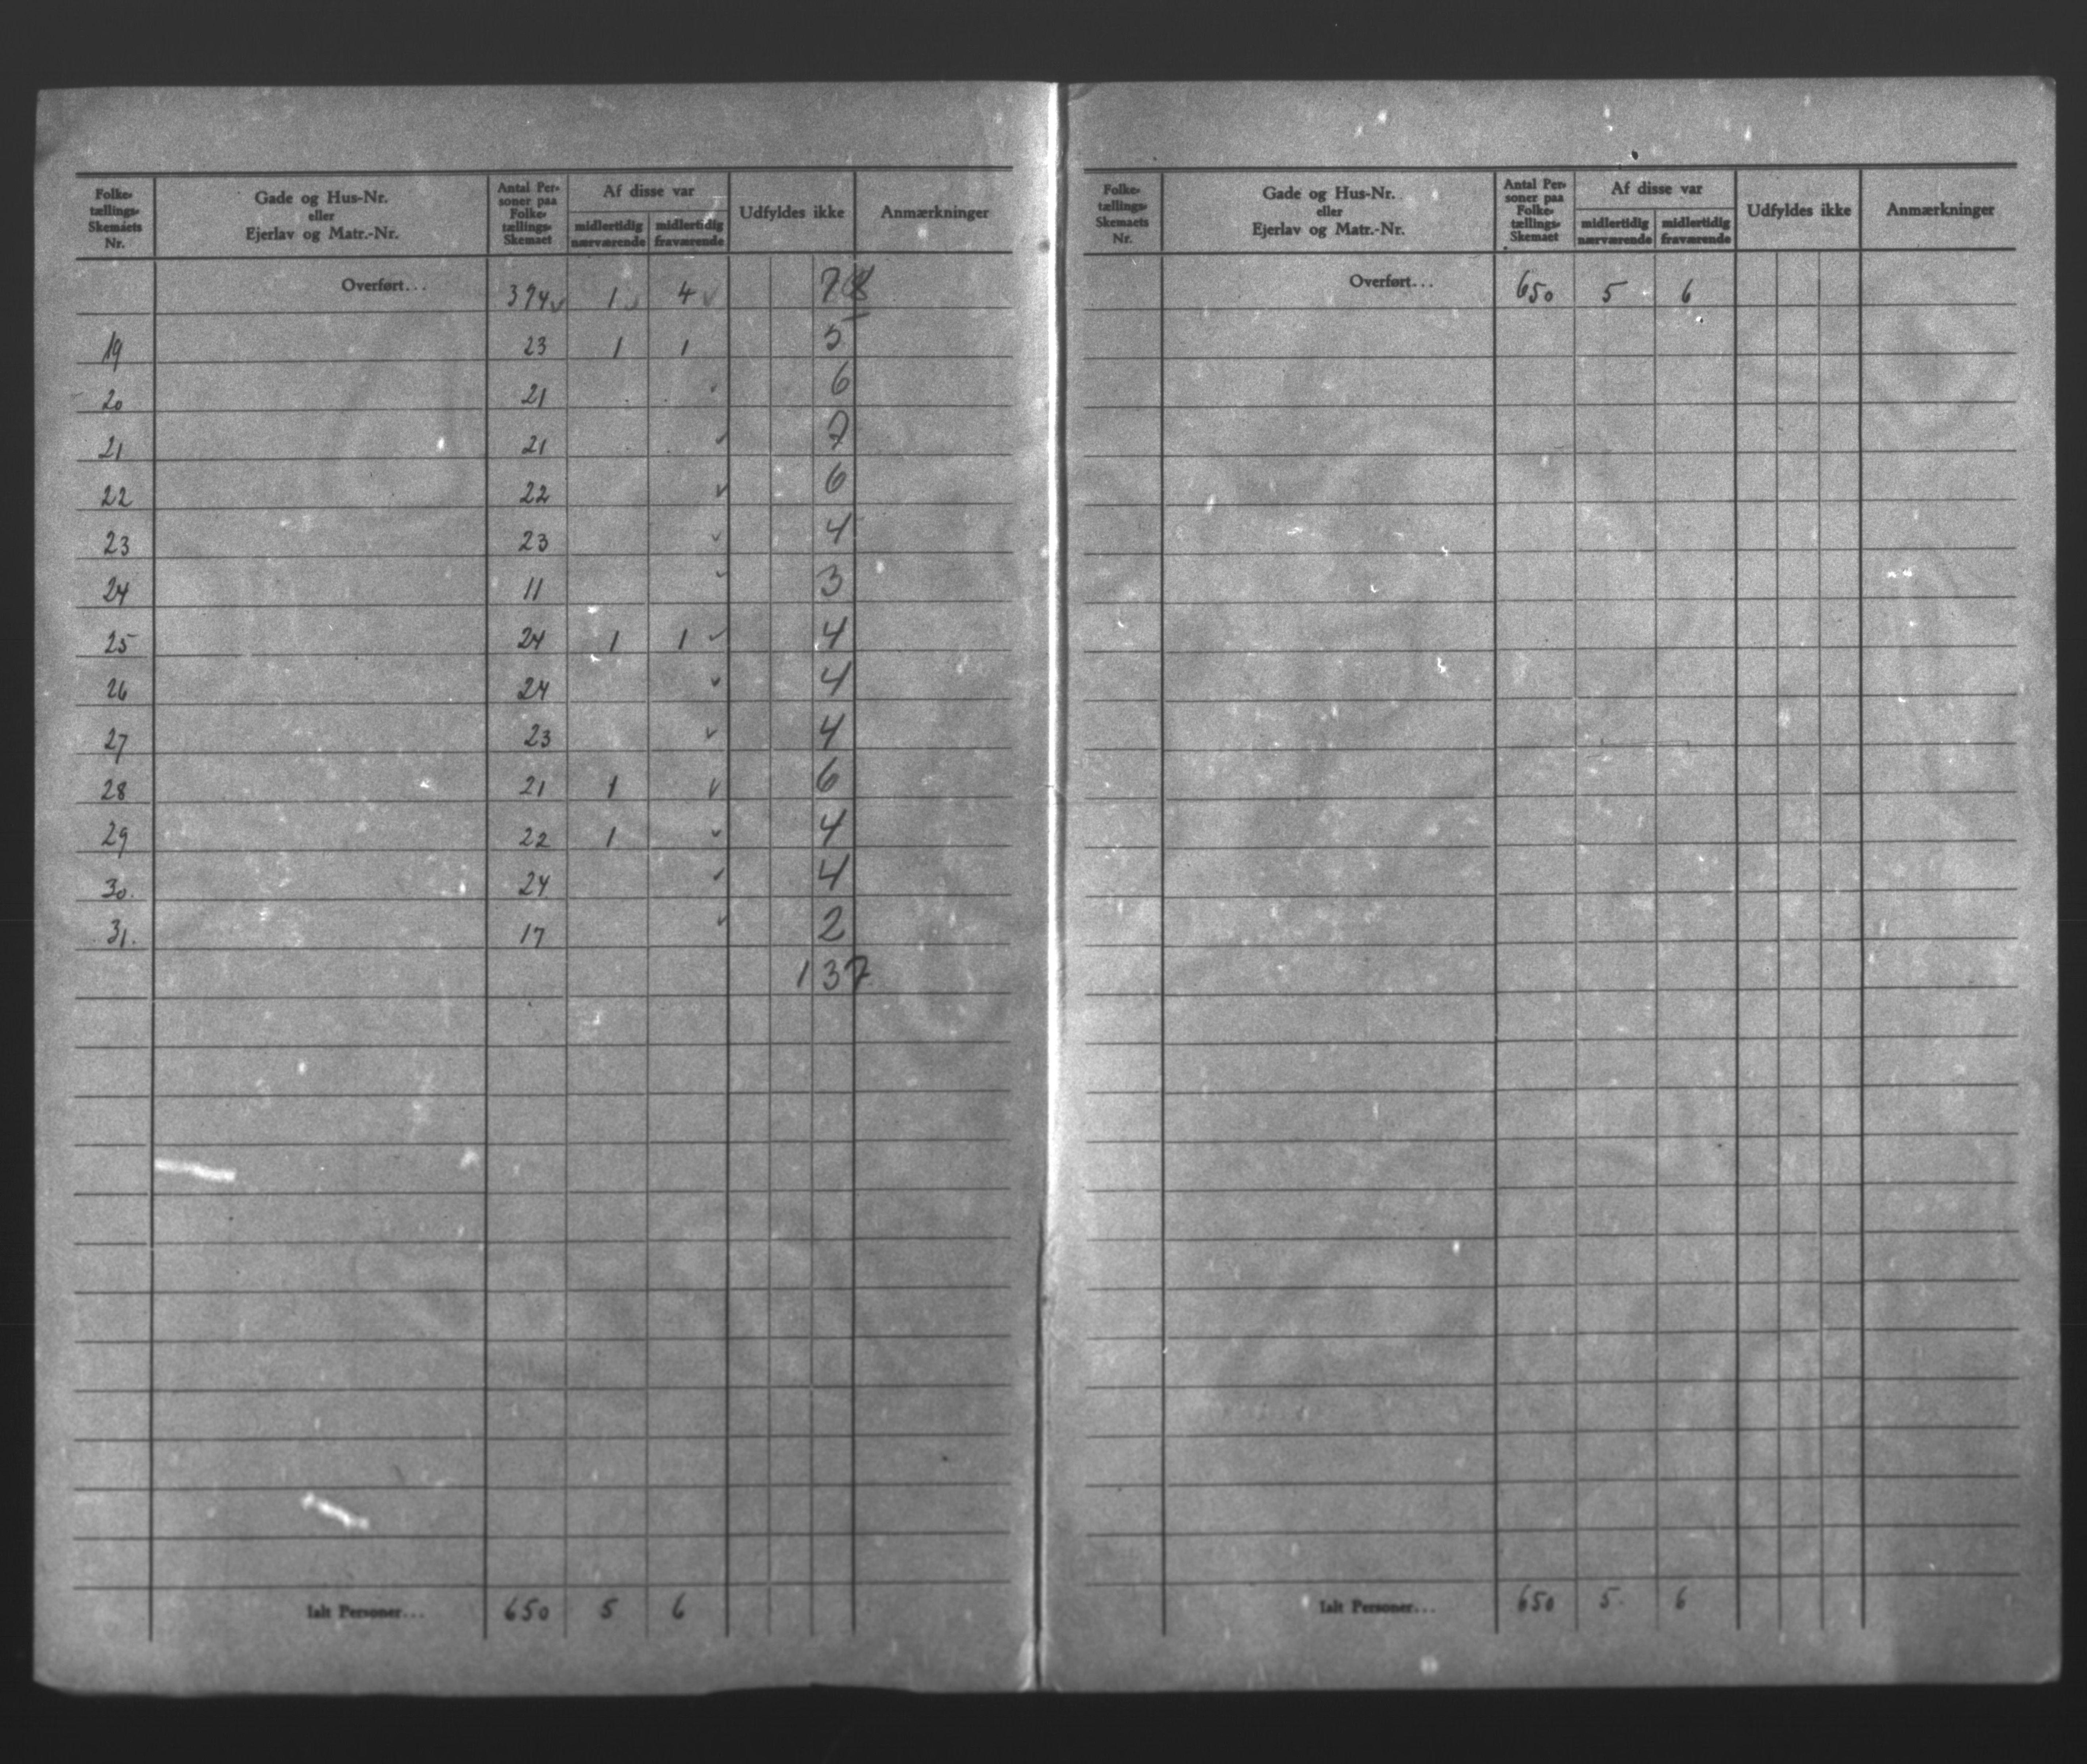 Folke-
tællings-
Skemaets
Nr.
Gade og Hus-Nr.
eller
Ejerlav og Matr.-Nr.
Antal Per-
soner paa
Folke-
tællings-
Skemaet
Af disse var
midlertidig
nærværende
midlertidig
fraværende
Udfyldes ikke
Anmærkninger
Overført... 374 1 4 78
19 23 1 1 5
20 21 6
21 21 7
22 22 6
23 23 4
24 11 3
25 24 1 1 4
26 24 4
27 23 4
28 21 1 6
29 22 1 4
30. 24 4
31. 17 2
137
Ialt Personer... 650 5 6
Folke-
tællings-
Skemaets
Nr.
Gade og Hus-Nr.
eller
Ejerlav og Matr.-Nr.
Antal Per-
soner paa
Folke-
tællings-
Skemaet
Af disse var
midlertidig
nærværende
midlertidig
fraværende
Udfyldes ikke
Anmærkninger
Overført... 650 5 6
Ialt Personer... 650 5 6